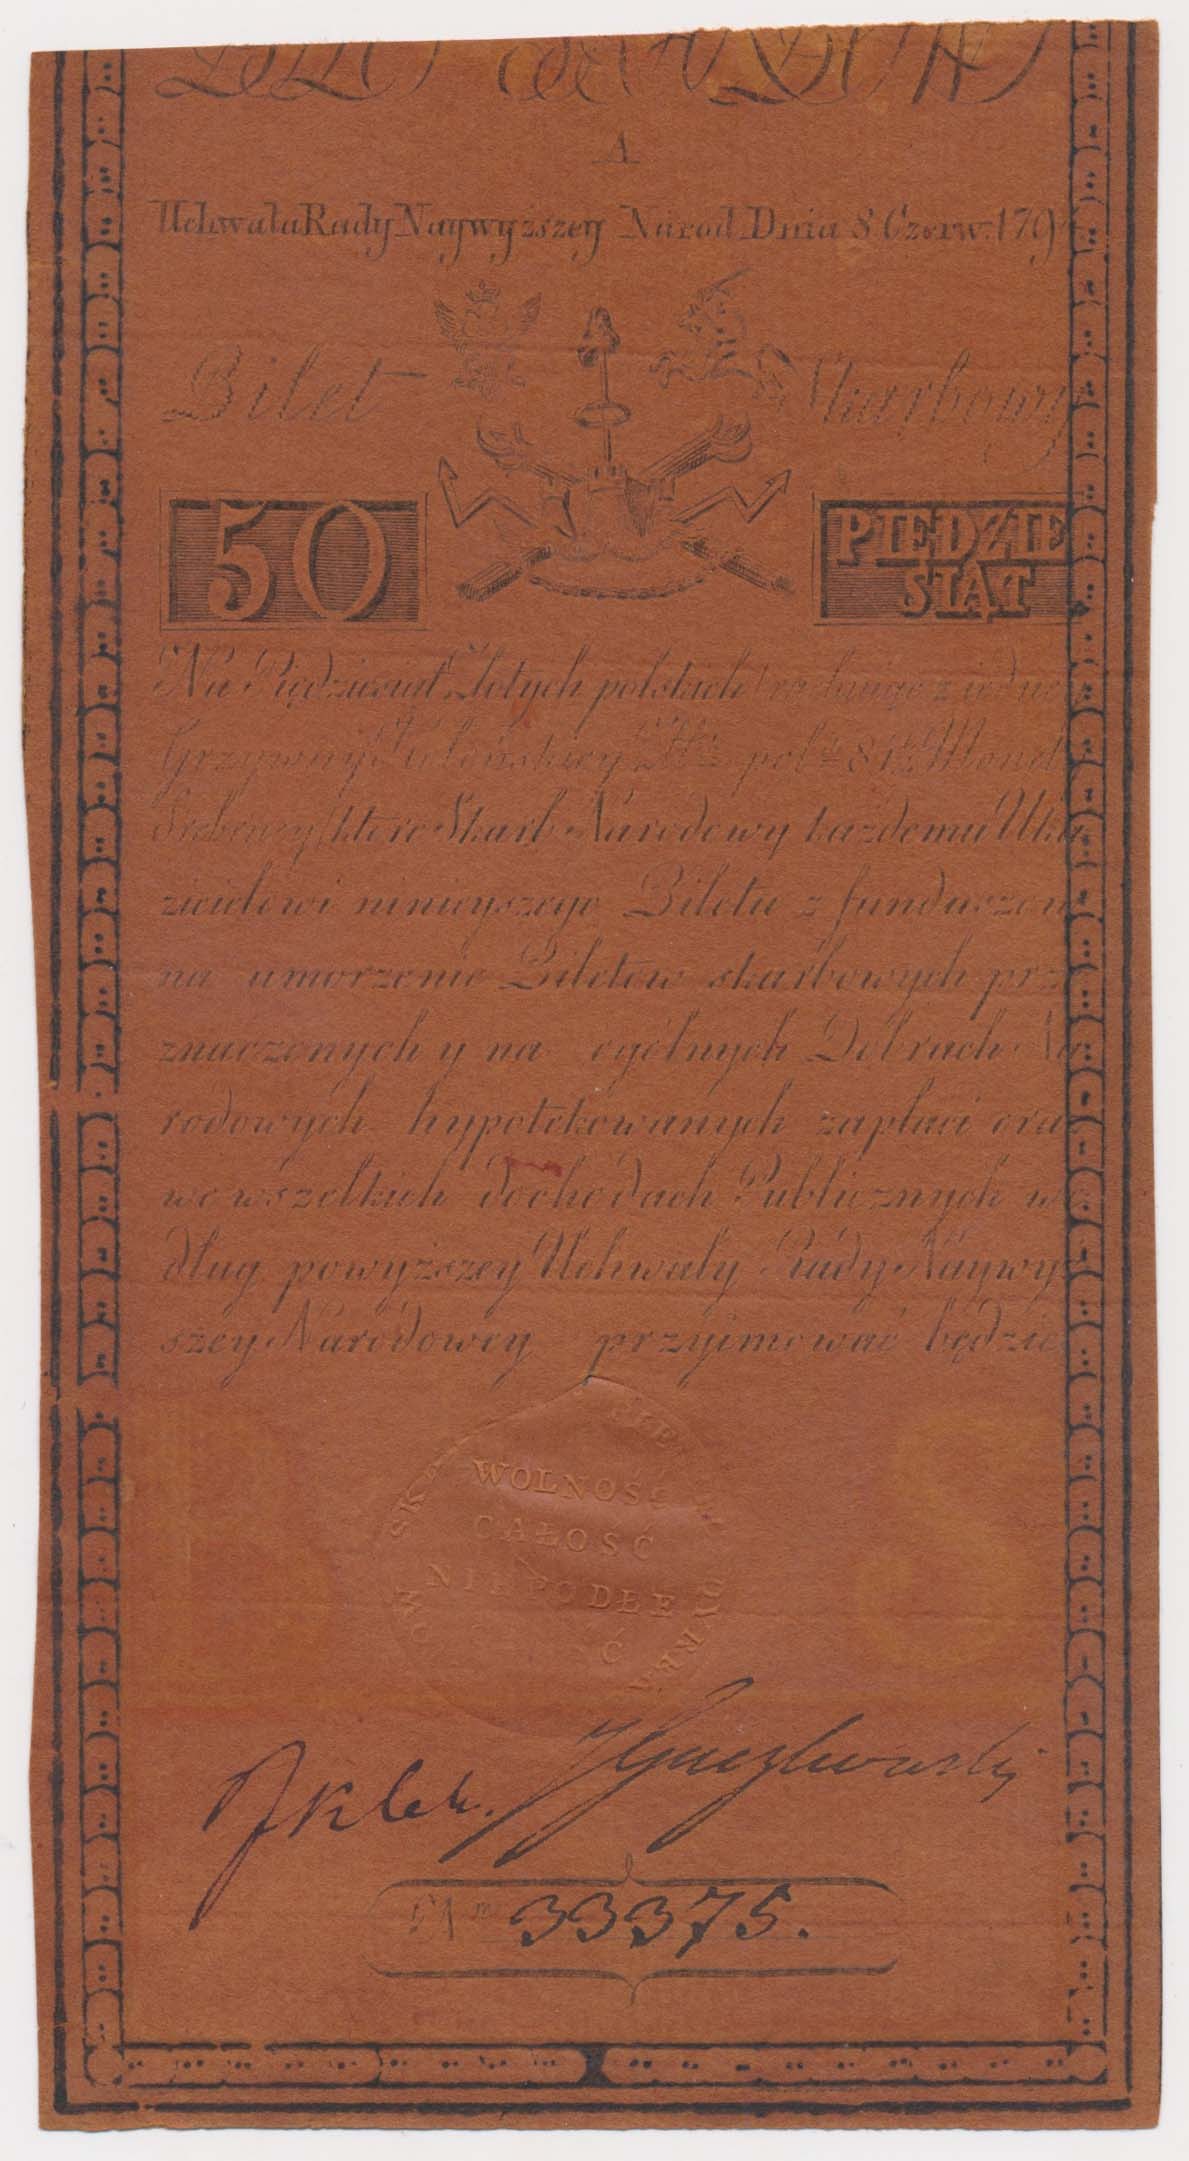 A
Uchwała Rady Naywyższey Narod. Dnia 8 Czerw. 179
Bilet Skarbowy
50 PIĘDZIE
SIĄT
Na Piędziesiąt Złotych polskich rachuiąc z iedney
Grzywny Kolońskiey pol: Monet
Srebrney które Skarb Narodowy każdemu Oka
zicielowi ninieyszego Biletu z funduszow
na umorzenie Biletow skarbowych prze
znaczonych y na ogólnych Dobrach Na
rodowych hypotekowanych zapłaci oraz
we wszelkich dochodach Publicznych we
dług powyższey Uchwały Rady Naywyż
szey Narodowey przyimować będzie
WOLNOŚĆ
CAŁOŚĆ
NIEPODŁE
Ć
B S
33375.